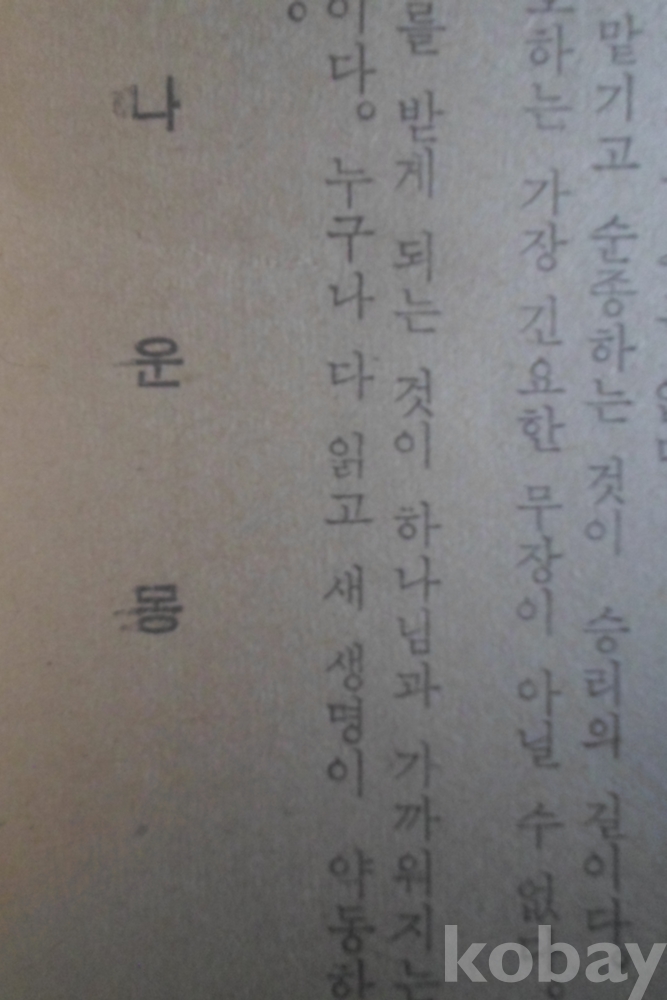 맡기고 순종하는 것이 승리의 길이다
하는 가장 긴요한 무장이 아닐 수 없다。
를 받게 되는 것이 하나님과 가까워지는
이다。 누구나 다 읽고 새 생명이 약동하
나 운 몽
kobay